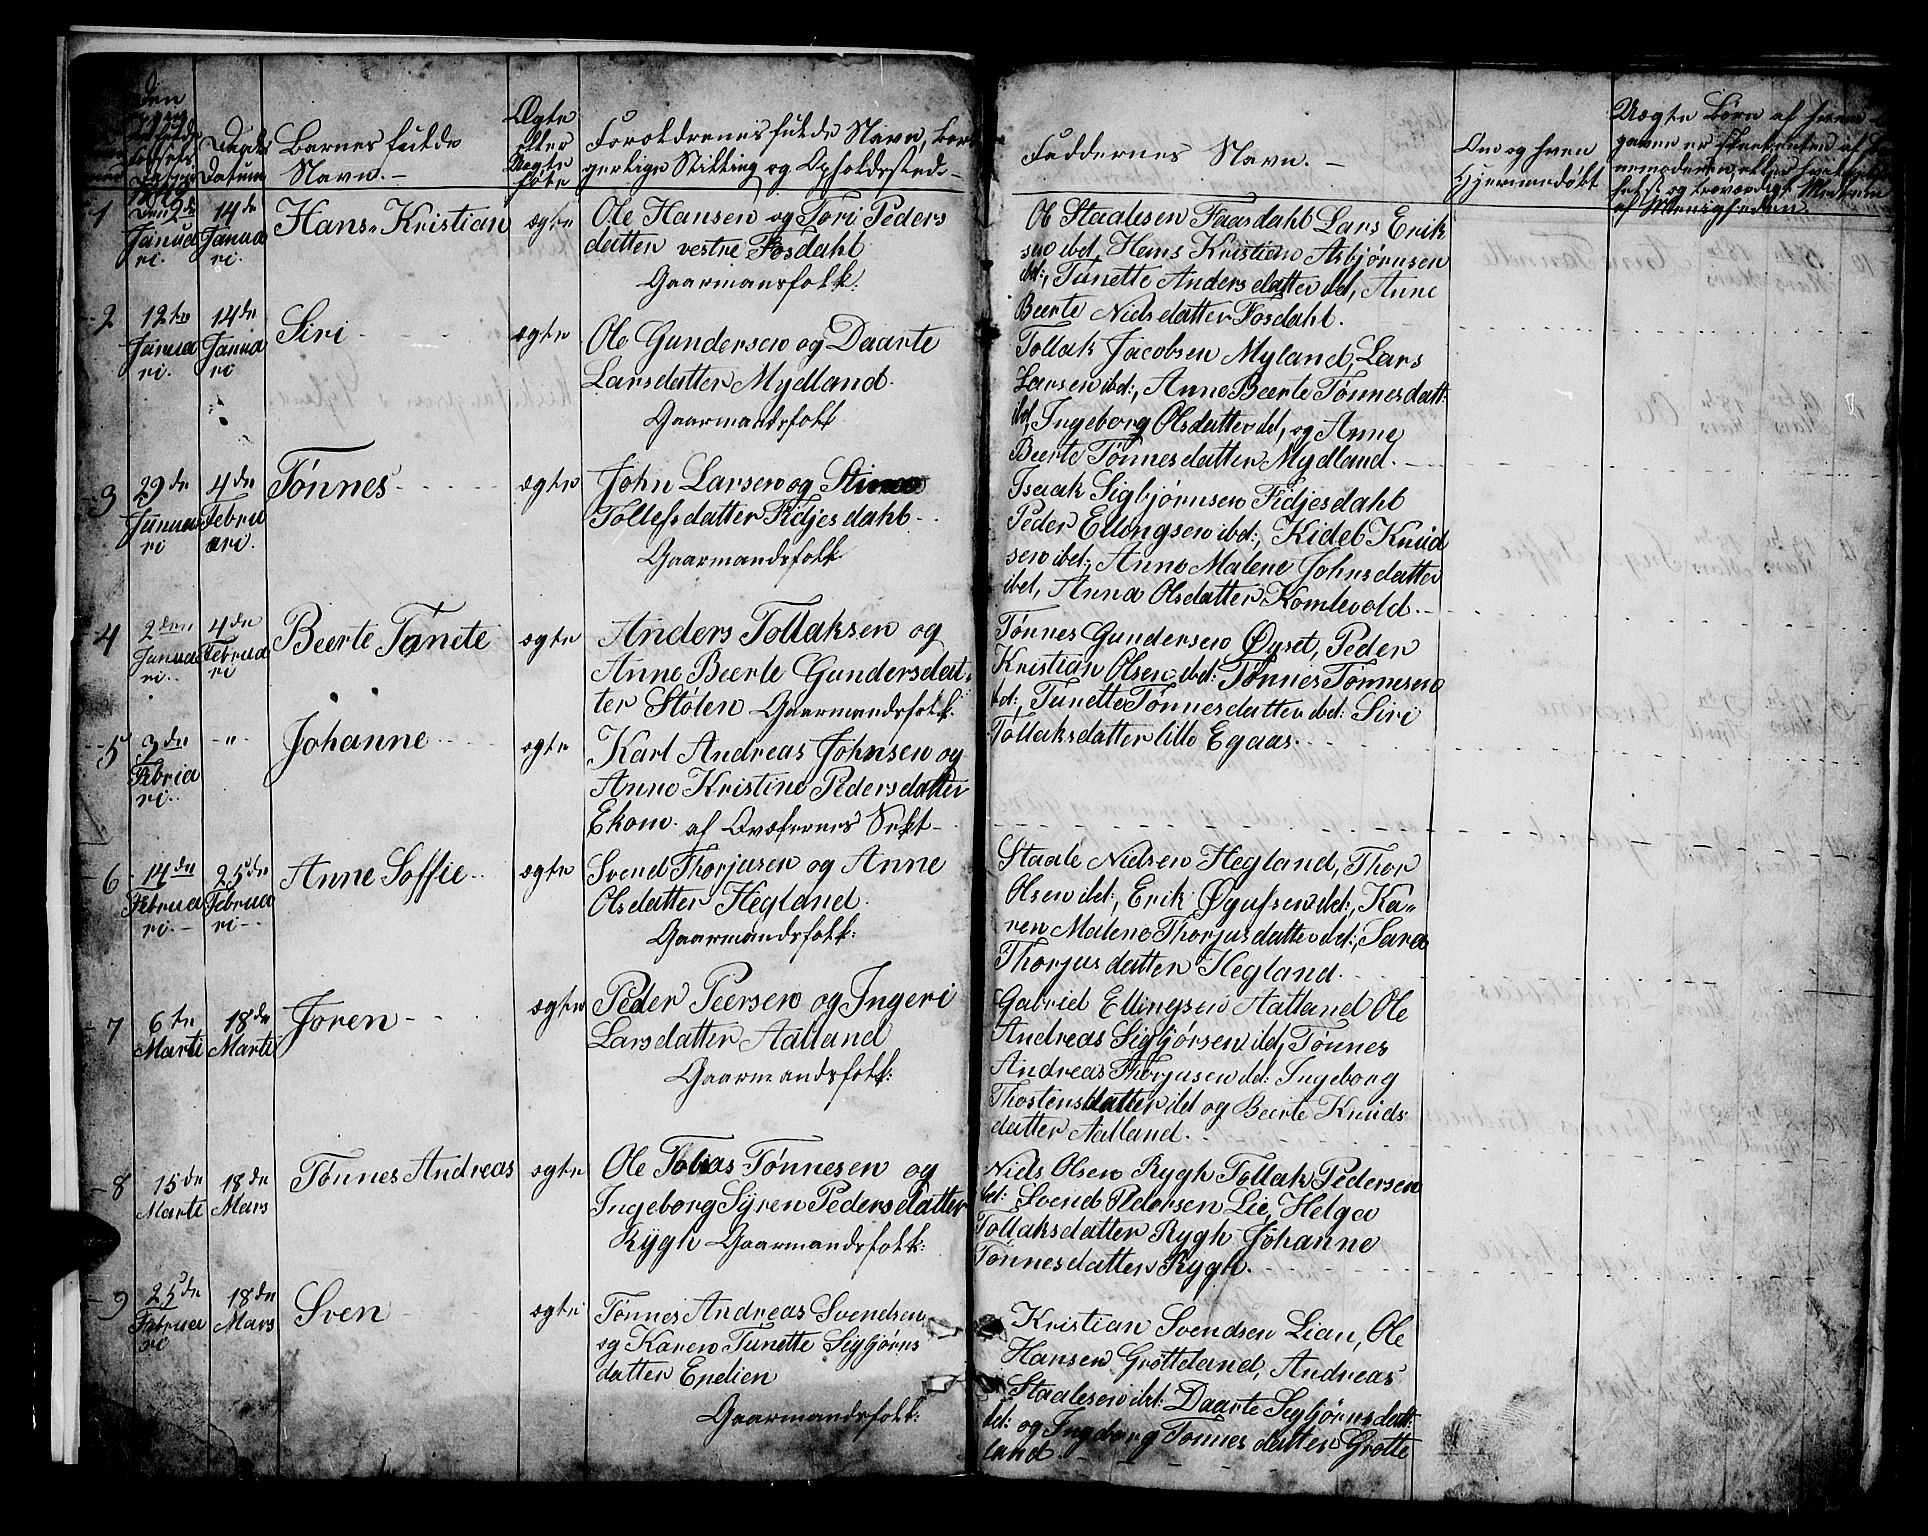 Daabs
Datum
Barnets fulde
Navn.-
Ægte
eller
Uægte
føbt
Forældrenes fulde Navn, bor-
gerlige Stilling og Opholdssted.-
Faddernes Navn.-
Om og hven
Hjemmedøbt
Uægte Børn af hvem
af Menigheden.
1
14de
Januа
ri.
Hans Kristian
ægte
Ole Hansen og Tori Peders
datter vestre Fosdahl
Gaarmansfolk:
Ol Staalesen Faasdahl Lars Erik
sen ibd, Hans Kristian Asbjørnsen
ibd:, Tunette Andersdatter ibd, Anne
Beerte Nielsdatter Fosdahl.
2
12te
Janua
ri.
14de
Janua
ri
Siri
ægte
Ole Gundersen og Daarte
Larsdatter Mydland.
Gaarmandsfolk
Tollak Jacobsen Myland, Lars
Larsen ibd:, Anne Beerte Tønnesdatt:
ibd, Ingeborg Olsdatter ibd, og Anne
Beerte Tønnesdatter Mydland.
3
29de
Janua
ri
4de
Febru
ari.
Tønnes
ægte
John Larsen og Stine
Tollefsdatter Fidjesdahl
Gaarmandsfolk
Isaak Sigbjørnsen Fidjesdahl
Peder Ellingsen ibd:, Kidel Knud
sen ibd:, Anne Malene Johnsdatter
ibd, Anna Olsdatter Komlevold.
4
2den
Janua
ri.
4de
Februa
ri
Beerte Tanete
ægte
Anders Tollaksen og
Anne Beerte Gundersdat
ter Støten Gaarmandsfolk:
Tønnes Gundersen Øyset, Peder
Kristian Olsen ibd: Tønnes Tønnesen
ibd:, Tunette Tønnesdatter ibd: Siri
Tollaksdatter lille Egaas.
5
3de
Februa
ri.
-"-
Johanne
ægte
Karl Andreas Johnsen og
Anne Kristine Pedersdatter
Ekom. af Qvækernes Sekt-
6
14de
Februa
ri.-
25de
Februa
ri-
Anne Soffie
ægte
Svend Thorjusen og Anne
Olsdatter Hegland.
Gaarmandsfolk:
Staale Nielsen Hegland, Thor
Olsen ibd:, Erik Øyufsen ibd:, Ka=
ren Malene Thorjusdatter ibd:, Sara
Thorjusdatter Hegland.
7
6te
Marti
18de
Marti
Joren
ægte
Peder Peersen og Ingeri
Larsdatter Aatland
Gaarmandsfolk:
Gabriel Ellingsen Aatland Ole
Andreas Sigbjørsen ibd, Tønnes
Andreas Thorjusen ibd: Ingeborg
Thostensdatter ibd og Beerte Knuds
datter Aatland.
8
15de
Marti
18de
Mars
Tønnes Andreas
ægte
Ole Tobias Tønnesen og
Ingeborg Syren Pedersdatter
Rygh Gaarmandsfolk:
Niels Olsen Rygh Tollak Pedersen
ibd: Svend Pedersen Lie, Helga
Tollaksdatter Rygh Johanne
Tønnesdatter Rygh.
9
25de
Februa
ri
18de
Mars
Sven
ægte
Tønnes Andreas Svendsen
og Karen Tunette Sigbjørns
datter Enelien
Gaarmandsfolk:
Kristian Svendsen Lian, Ole
Hansen Grøtteland, Andreas
Staalesen ibd: Daarte Sigbjørnsdatt:
ibd: og Ingeborg Tønnesdatter Grøtte
land.